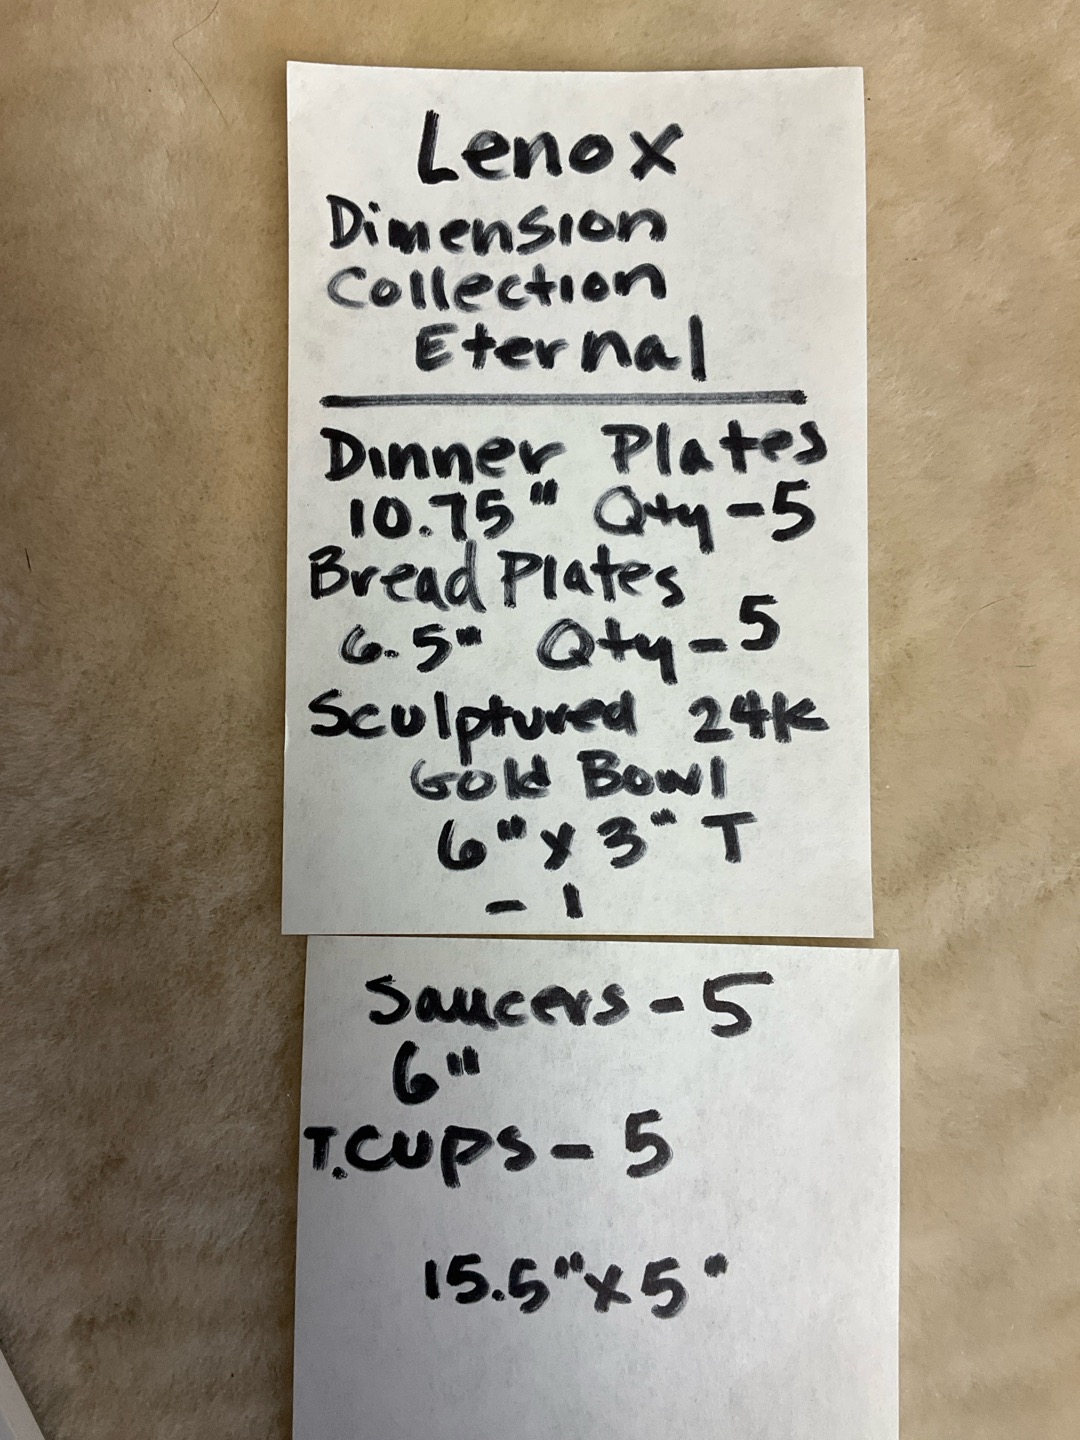 Lenox
Dimension
Collection
Eternal
Dinner Plates
10.75" Qty-5
Bread Plates
6.5" Qty-5
Sculptured 24K
Gold Bowl
6" x 3" T
- 1
Saucers - 5
6"
T.Cups - 5
15.5" x 5"